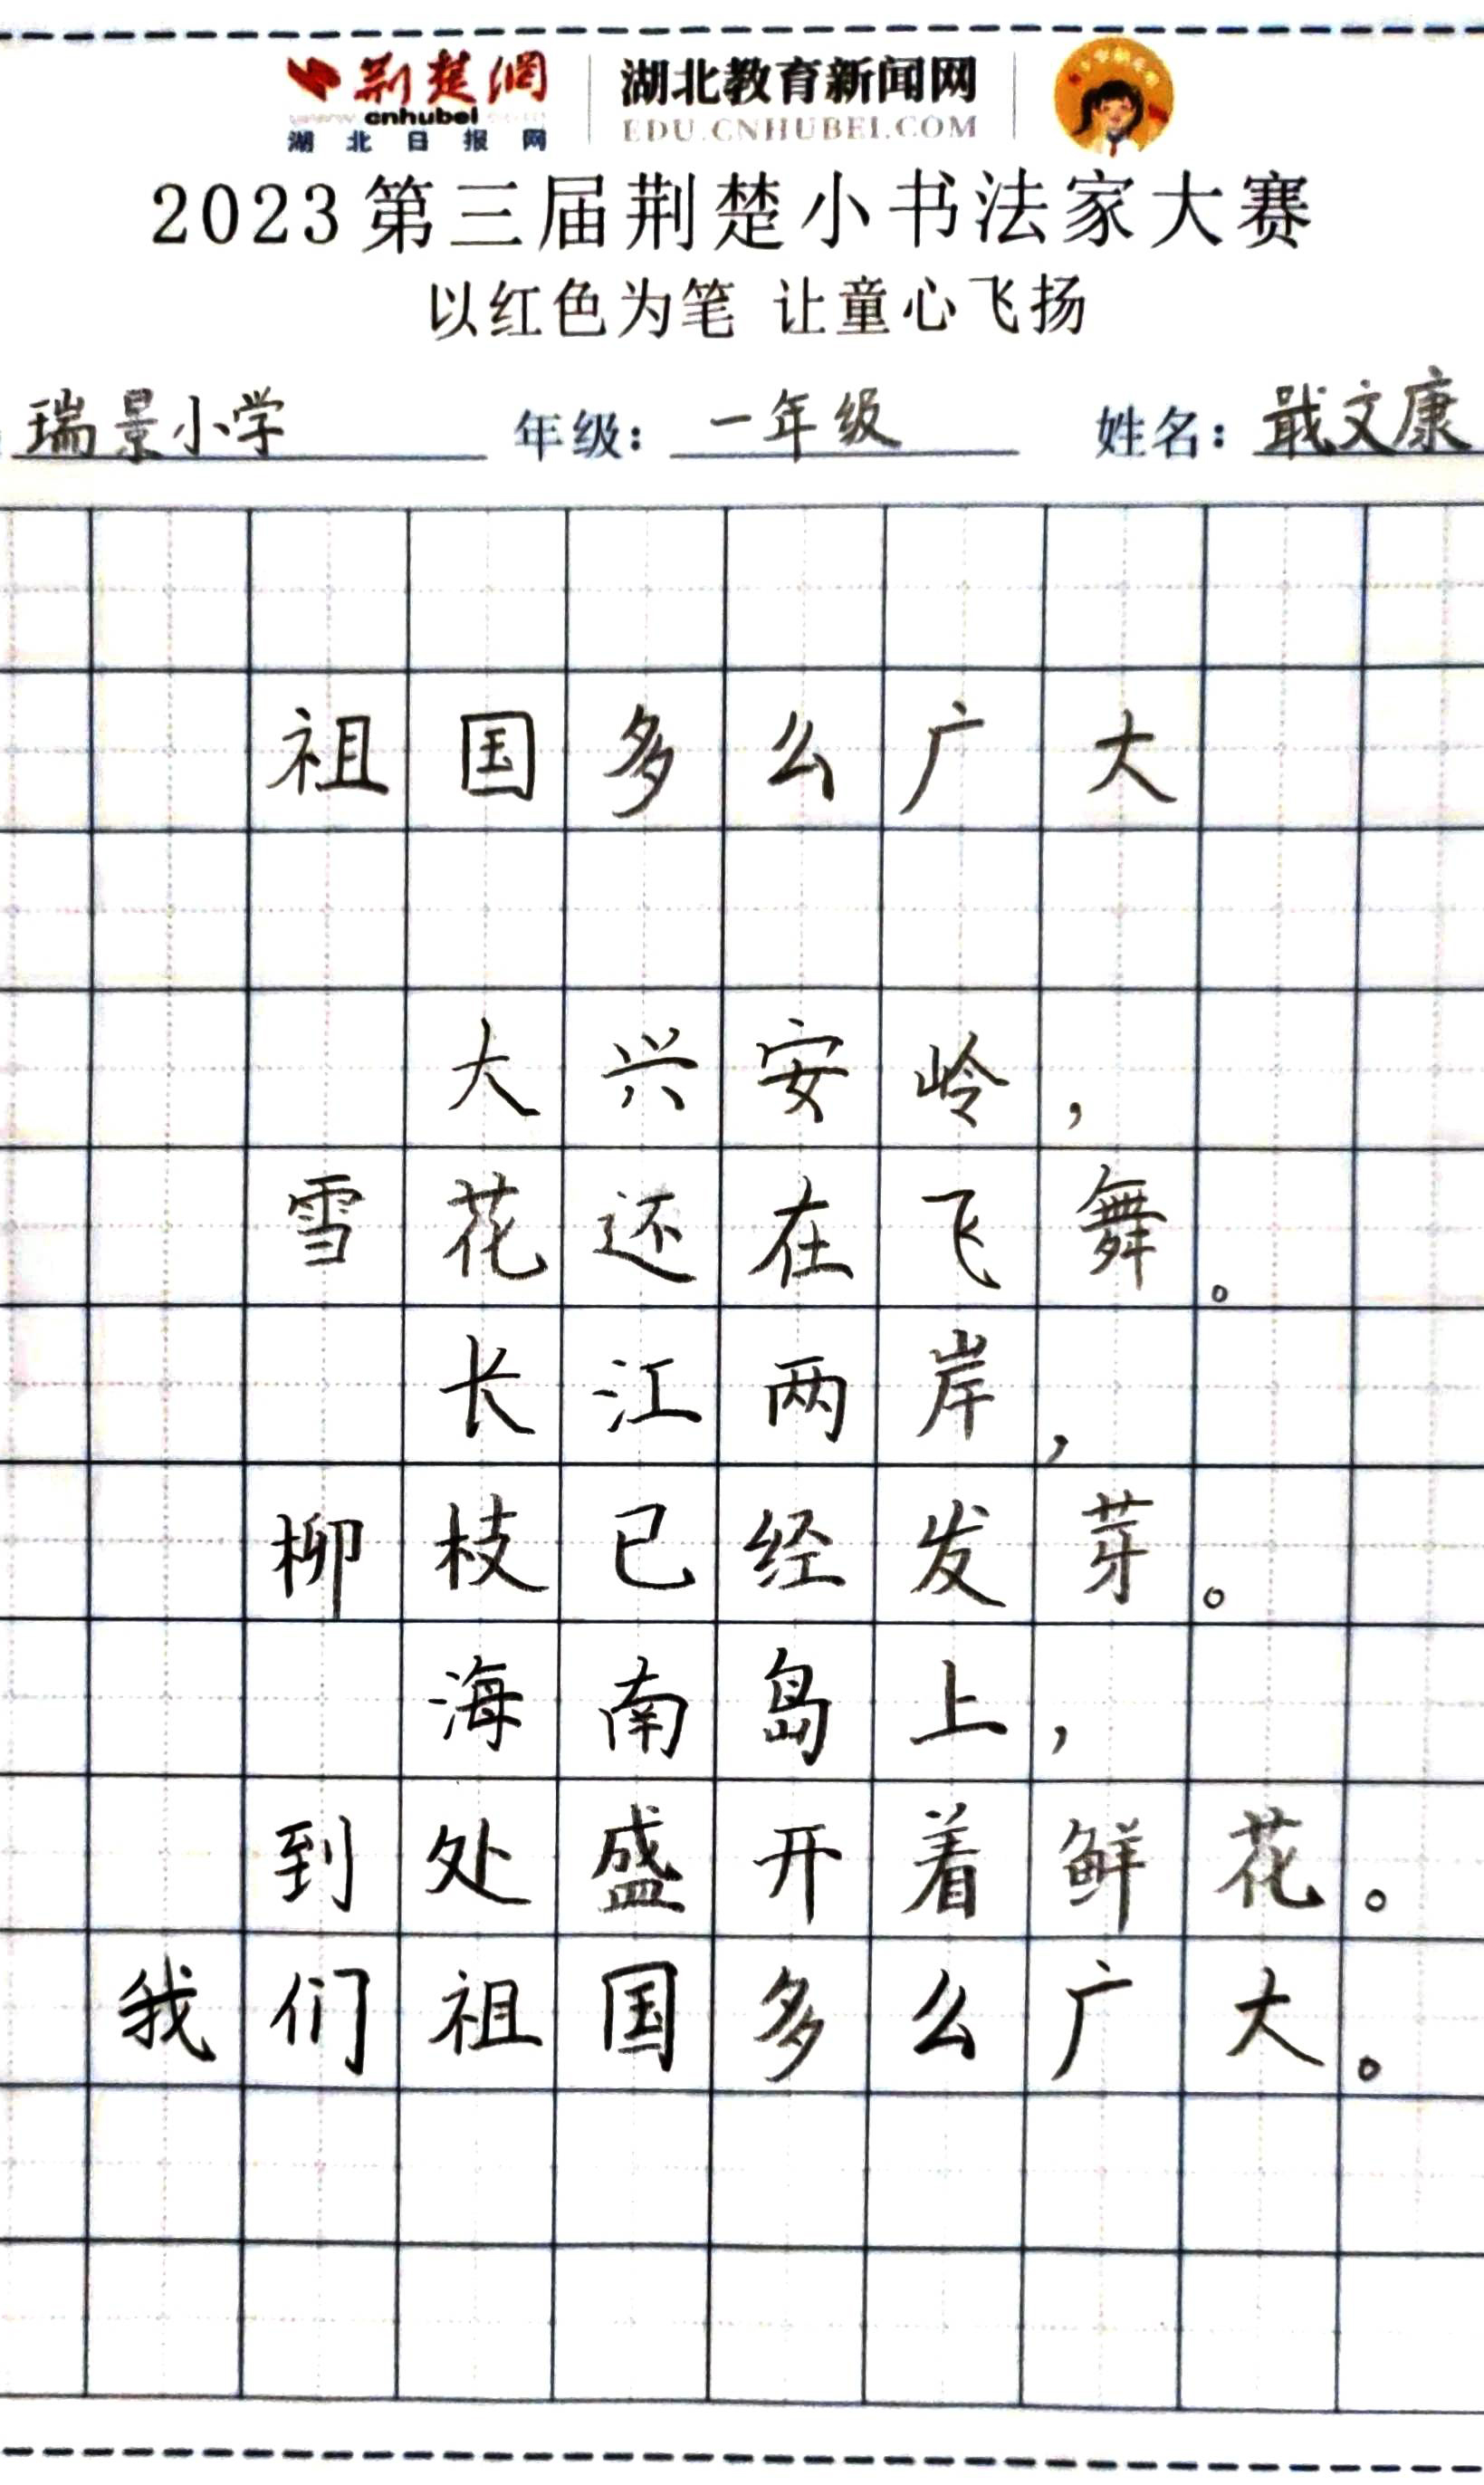 荆楚網 湖北教育新闻网
www.cnhubei.com EDU.CNHUBEI.COM
湖北日报网
2023第三届荆楚小书法家大赛
以红色为笔 让童心飞扬
瑞景小学 年级：一年级 姓名：戢文康
祖国多么广大
大兴安岭，
雪花还在飞舞。
长江两岸，
柳枝已经发芽。
海南岛上，
到处盛开着鲜花。
我们祖国多么广大。